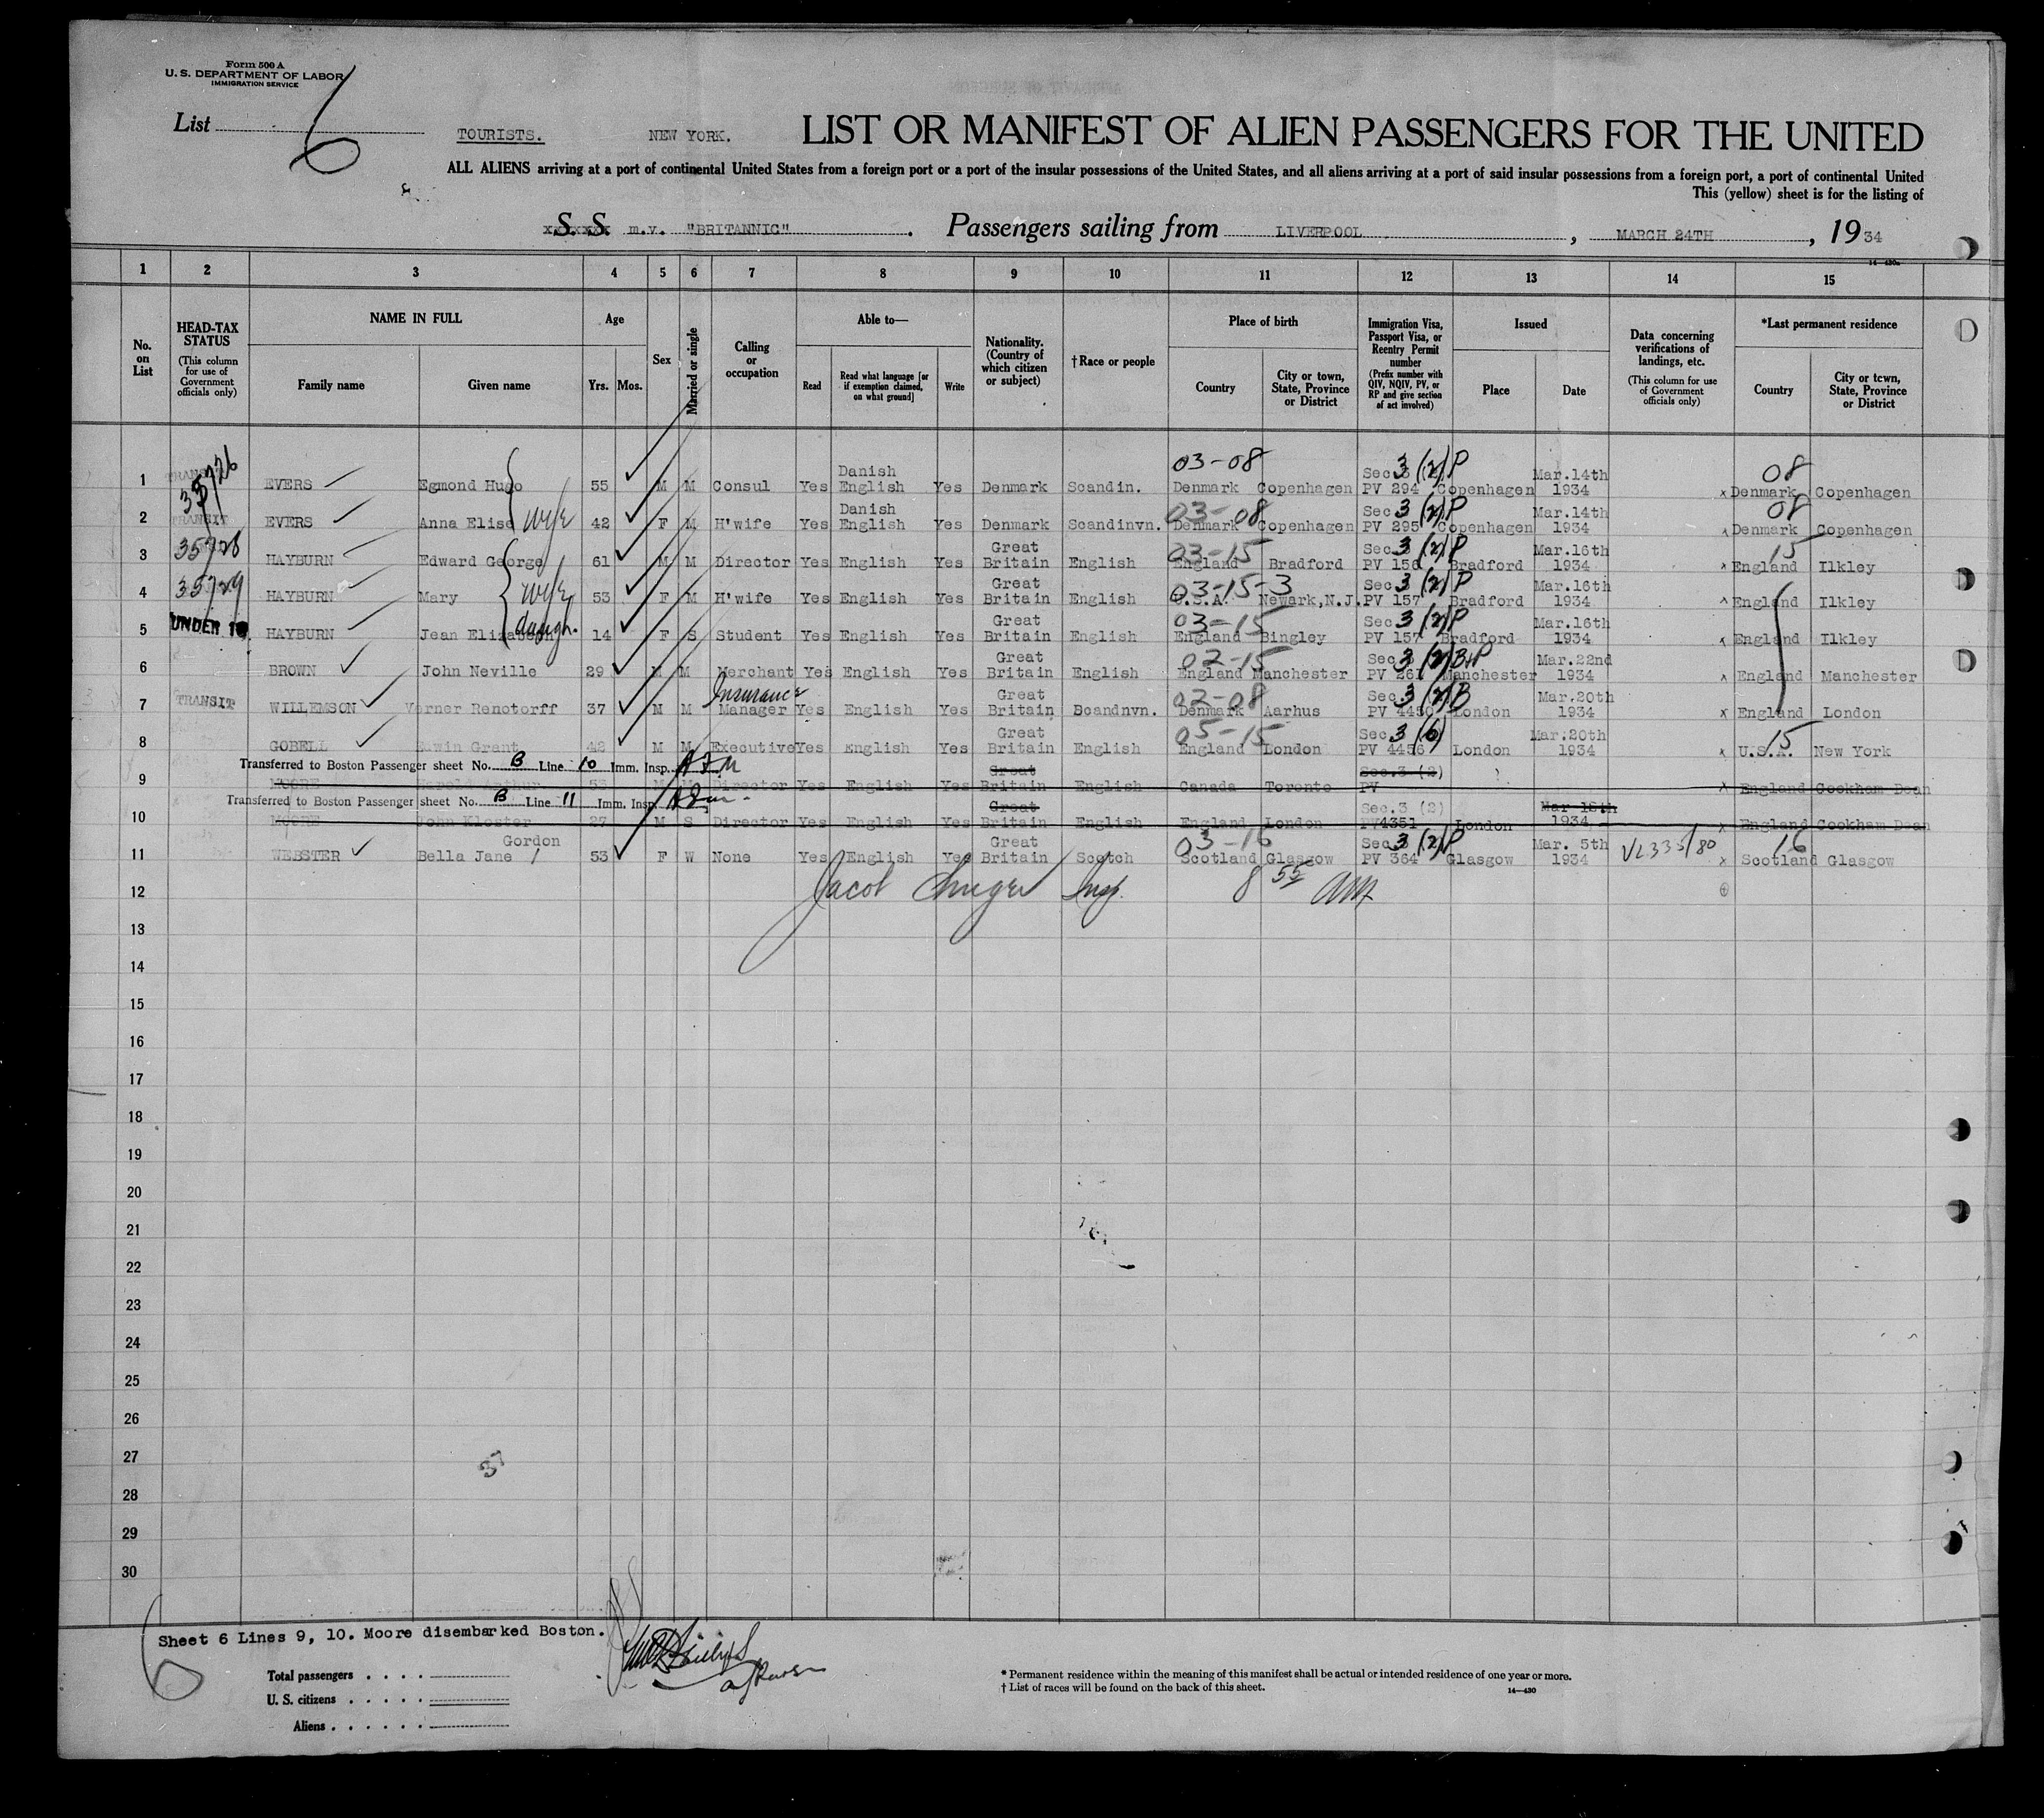 Form 500 A
U. S. DEPARTMENT OF LABOR
IMMIGRATION SERVICE
List 6
TOURISTS. NEW YORK. LIST OR MANIFEST OF ALIEN PASSENGERS FOR THE UNITED
ALL ALIENS arriving at a port of continental United States from a foreign port or a port of the insular possessions of the United States, and all aliens arriving at a port of said insular possessions from a foreign port, a port of continental United
This (yellow) sheet is for the listing of
S. S. m.v. "BRITANNIC" . Passengers sailing from LIVERPOOL , MARCH 24TH , 1934
14-430a
1 2 3 4 5 6 7 8 9 10 11 12 13 14 15
No. on List
HEAD-TAX STATUS (This column for use of Government officials only)
NAME IN FULL
Family name
Given name
Age
Yrs.
Mos.
Sex
Married or single
Calling or occupation
Able to—
Read
Read what language [or if exemption claimed, on what ground]
Write
Nationality. (Country of which citizen or subject)
†Race or people
Place of birth
Country
City or town, State, Province or District
Immigration Visa, Passport Visa, or Reentry Permit number (Prefix number with QIV, NQIV, PV, or RP and give section of act involved)
Issued
Place
Date
Data concerning verifications of landings, etc. (This column for use of Government officials only)
*Last permanent residence
Country
City or town, State, Province or District
1 TRANSIT EVERS Egmond Hugo 55 M M Consul Yes Danish English Yes Denmark Scandin. 03-08 Denmark Copenhagen Sec 3 (2) P PV 294 Copenhagen Mar.14th 1934 x 08 Denmark Copenhagen
2 TRANSIT EVERS Anna Elise wife 42 F M H'wife Yes Danish English Yes Denmark Scandinvn. 03-08 Denmark Copenhagen Sec 3 (2) P PV 295 Copenhagen Mar.14th 1934 x 08 Denmark Copenhagen
3 35728 HAYBURN Edward George 61 M M Director Yes English Yes Great Britain English 03-15 England Bradford Sec 3 (2) P PV 156 Bradford Mar.16th 1934 x 15 England Ilkley
4 35729 HAYBURN Mary wife 53 F M H'wife Yes English Yes Great Britain English 03-15-3 U.S.A. Newark,N.J. Sec 3 (2) P PV 157 Bradford Mar.16th 1934 x England Ilkley
5 UNDER 16 HAYBURN Jean Elizabeth daugh. 14 F S Student Yes English Yes Great Britain English 03-15 England Bingley Sec 3 (2) P PV 157 Bradford Mar.16th 1934 x England Ilkley
6 BROWN John Neville 29 M M Merchant Yes English Yes Great Britain English 02-15 England Manchester Sec 3 (2) B+P PV 261 Manchester Mar.22nd 1934 x England Manchester
7 TRANSIT WILLEMSON Verner Renotorff 37 M M Insurance Manager Yes English Yes Great Britain Scandnvn. 02-08 Denmark Aarhus Sec 3 (2) B PV 4450 London Mar.20th 1934 x England London
8 GOBELL Edwin Grant 42 M M Executive Yes English Yes Great Britain English 05-15 England London Sec 3 (6) PV 4456 London Mar.20th 1934 x 15 U.S.A. New York
Transferred to Boston Passenger sheet No. B Line 10 Imm. Insp.
9 MOORE Harold Arthur 55 M M Director Yes English Yes Great Britain English Canada Toronto Sec.3 (2) PV x England Cookham Dean
Transferred to Boston Passenger sheet No. B Line 11 Imm. Insp.
10 MOORE John Kloster 27 M S Director Yes English Yes Great Britain English England London Sec.3 (2) PV4351 London Mar 16th 1934 x England Cookham Dean
11 WEBSTER Bella Jane Gordon 53 F W None Yes English Yes Great Britain Scotch 03-16 Scotland Glasgow Sec 3 (2) P PV 364 Glasgow Mar. 5th 1934 VL335/80 x 16 Scotland Glasgow
12 Jacob Insp. 8 55 AM
13
14
15
16
17
18
19
20
21
22
23
24
25
26
27
37
28
29
30
6
Sheet 6 Lines 9, 10. Moore disembarked Boston.
Total passengers . . . .
U. S. citizens . . . . .
Aliens . . . . . .
* Permanent residence within the meaning of this manifest shall be actual or intended residence of one year or more.
† List of races will be found on the back of this sheet.
14-430